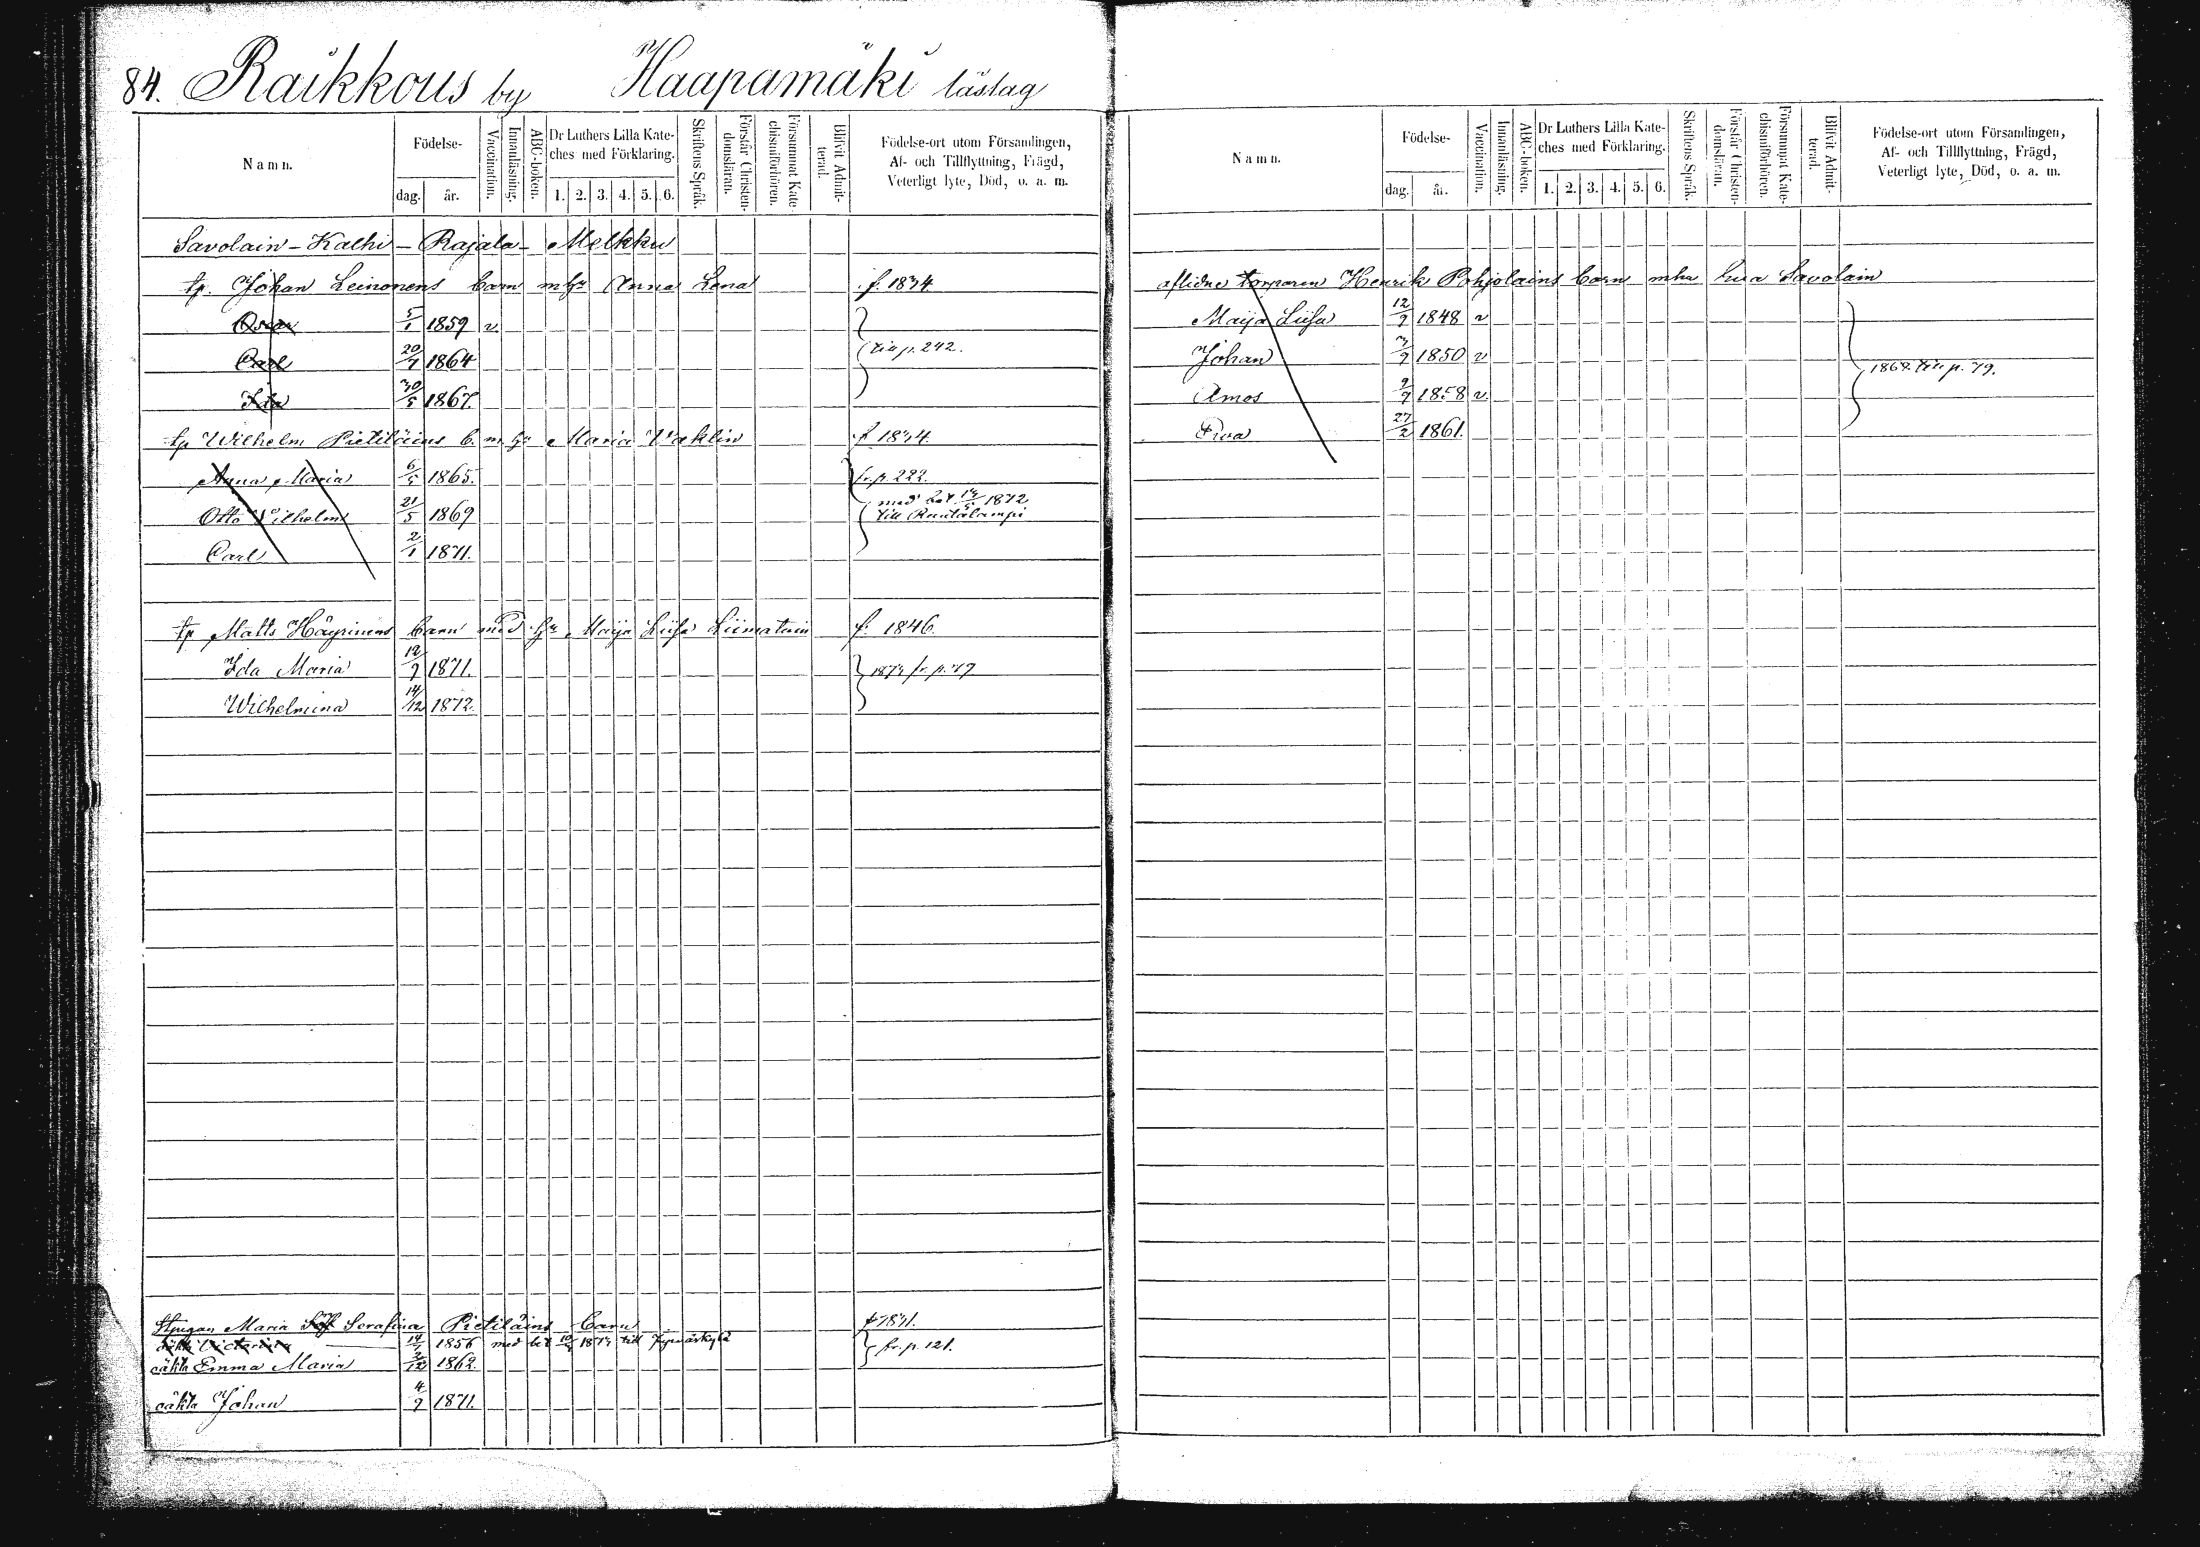 84. Raikkous by Haapamäki läslag
Namn. Födelse- dag. år. Vaccination. Innanläsning. ABC-boken. Dr Luthers Lilla Kateches med Förklaring. 1. 2. 3. 4. 5. 6. Skriftens Språk. Förstår Christendomsläran. Försummat Katechismiförhören. Blifvit Admitterad. Födelse-ort utom Församlingen, Af- och Tillflyttning, Frägd, Veterligt lyte, Död, o. a. m.
Savolain - Kalhi - Rajala - Melkku
tp. Johan Leinonens barn m hu Anna Lena f. 1834
Oscar 5/1 1859 v.
Carl 20/7 1864 till p. 242.
Ida 30/5 1867.
tp Wilhelm Pietiläins b. m. hu Maria Waklin f 1834.
Anna Maria 6/5 1865. fr. p. 222.
Otto Wilhelm 21/5 1869 med bet 1872
till Rautalampi
Carl 2/1 1871.
tp Matts Häyrinens barn med hu Maija Liisa Liimatain f. 1846.
Ida Maria 12/9 1871. 1873 fr. p. 77
Wilhelmina 14/12 1872.
Maria Serafina Pietiläins Barn
oäkta Victorina 14/1 1856 med bet 1873 till Jyväskylä fr. p. 121.
oäkta Emma Maria 2/12 1862.
oäkta Johan 4/9 1871.
Namn. Födelse- dag. år. Vaccination. Innanläsning. ABC-boken. Dr Luthers Lilla Kateches med Förklaring. 1. 2. 3. 4. 5. 6. Skriftens Språk. Förstår Christendomsläran. Försummat Katechismiförhören. Blifvit Admitterad. Födelse-ort utom Församlingen, Af- och Tillflyttning, Frägd, Veterligt lyte, Död, o. a. m.
aflidne torparen Henrik Pohjolains barn mhu Eva Savolain
Maija Liisa 12/9 1848 v
Johan 3/9 1850 v
Amos 9/9 1858 v. 1868 till p. 79.
Eva 27/2 1861.